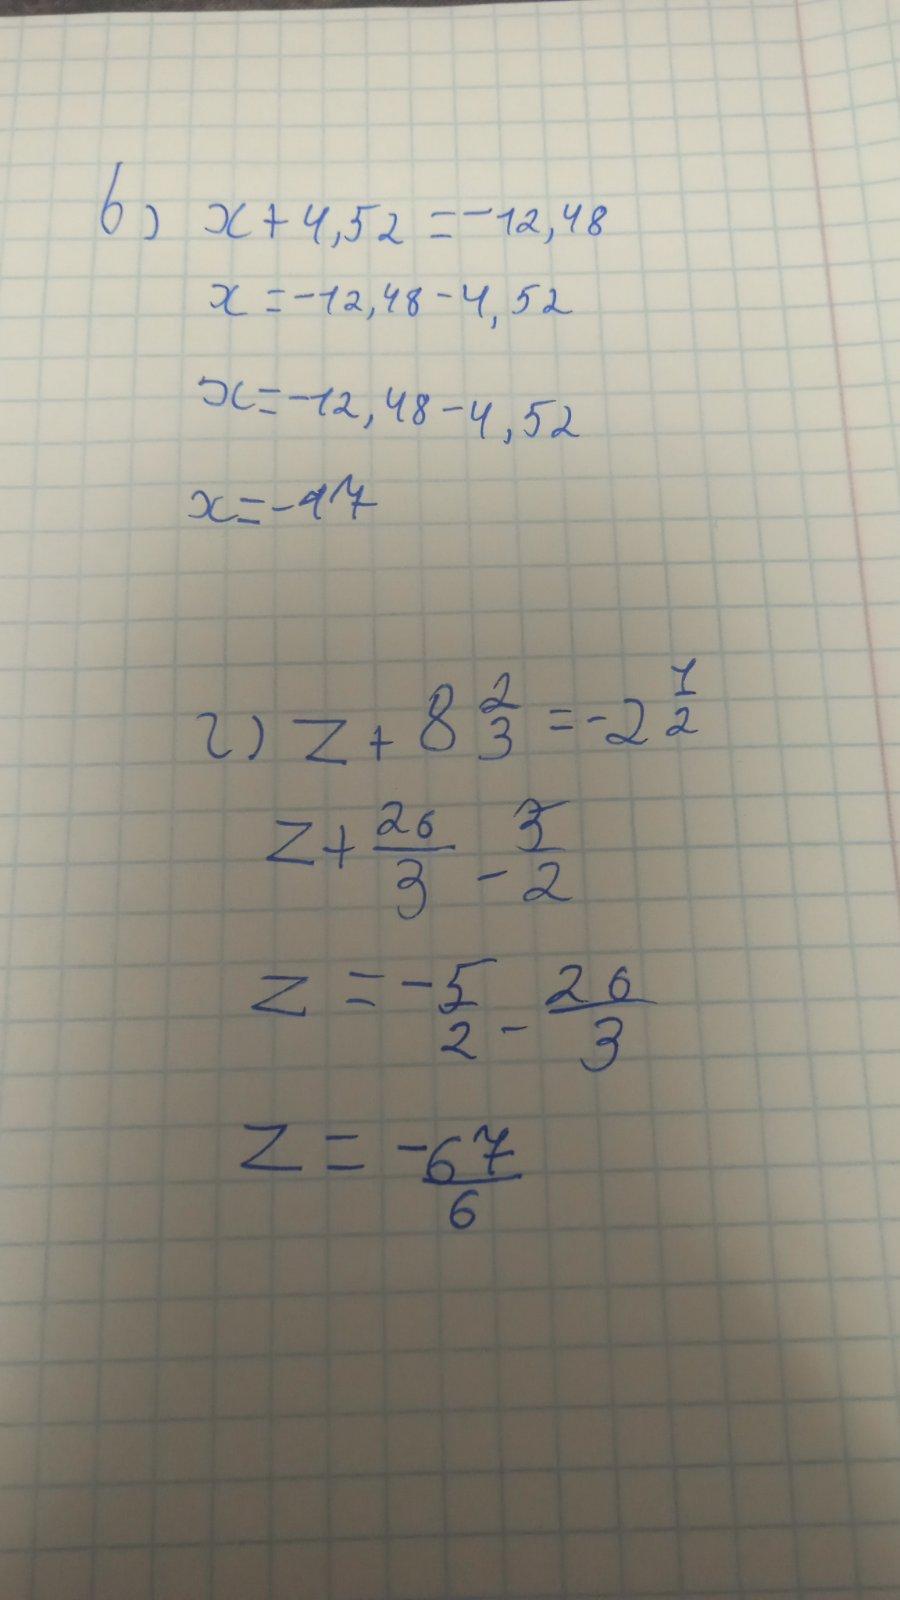 в) x + 4,52 = -12,48
x = -12,48 - 4,52
x = -12,48 - 4,52
x = -17
г) z + 8 2/3 = -2 1/2
z + 26/3 - 5/2
z = -5/2 - 26/3
z = -67/6